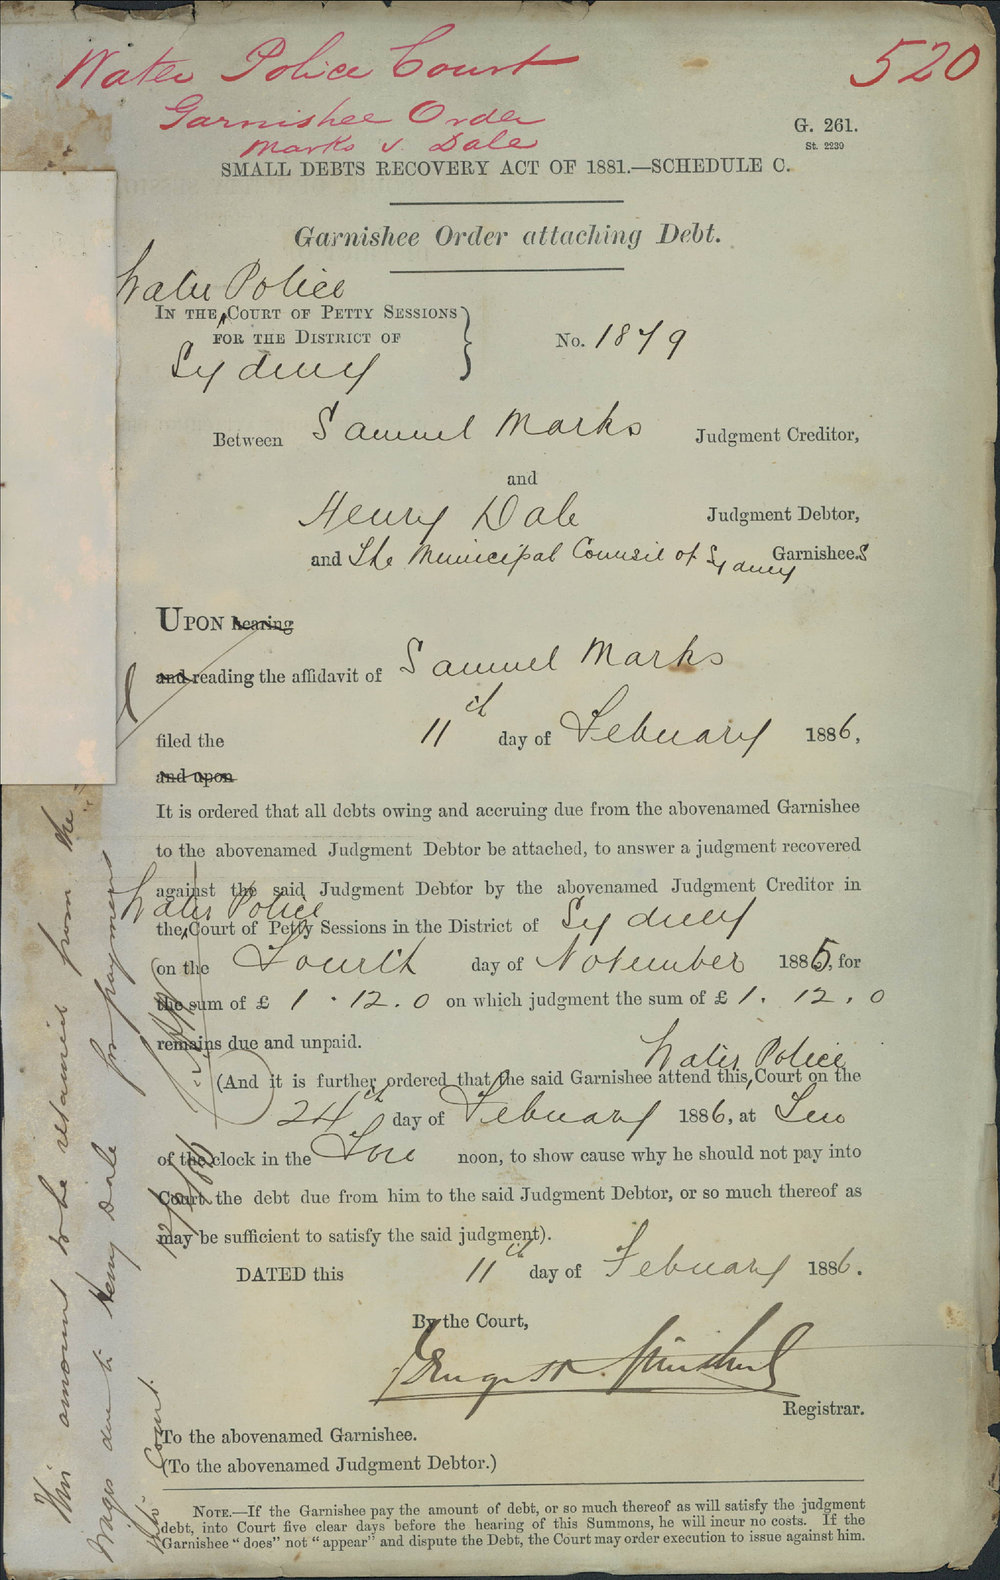 Water Police Court
520
Garnishee Order
Marks v. Dale
G. 261.
St. 2239
SMALL DEBTS RECOVERY ACT OF 1881.—SCHEDULE C.
Garnishee Order attaching Debt.
Water Police
IN THE COURT OF PETTY SESSIONS
FOR THE DISTRICT OF
Sydney
No. 1879
Between Samuel Marks Judgment Creditor,
and
Henry Dale Judgment Debtor,
and The Municipal Council of Sydney Garnishees
UPON hearing
and reading the affidavit of Samuel Marks
filed the 11th day of February 1886,
and upon
It is ordered that all debts owing and accruing due from the abovenamed Garnishee
to the abovenamed Judgment Debtor be attached, to answer a judgment recovered
against the said Judgment Debtor by the abovenamed Judgment Creditor in
Water Police
the Court of Petty Sessions in the District of Sydney
on the Fourth day of November 1885, for
the sum of £ 1 . 12 . 0 on which judgment the sum of £ 1 . 12 . 0
remains due and unpaid.
Water Police
(And it is further ordered that the said Garnishee attend this Court on the
24th day of February 1886, at Ten
of the clock in the Fore noon, to show cause why he should not pay into
Court the debt due from him to the said Judgment Debtor, or so much thereof as
may be sufficient to satisfy the said judgment).
DATED this 11th day of February 1886.
By the Court,
Registrar.
To the abovenamed Garnishee.
(To the abovenamed Judgment Debtor.)
NOTE.—If the Garnishee pay the amount of debt, or so much thereof as will satisfy the judgment
debt, into Court five clear days before the hearing of this Summons, he will incur no costs. If the
Garnishee "does" not "appear" and dispute the Debt, the Court may order execution to issue against him.
This amount to be retained from the
wages due to Henry Dale for payment
into Court.
12/2/86